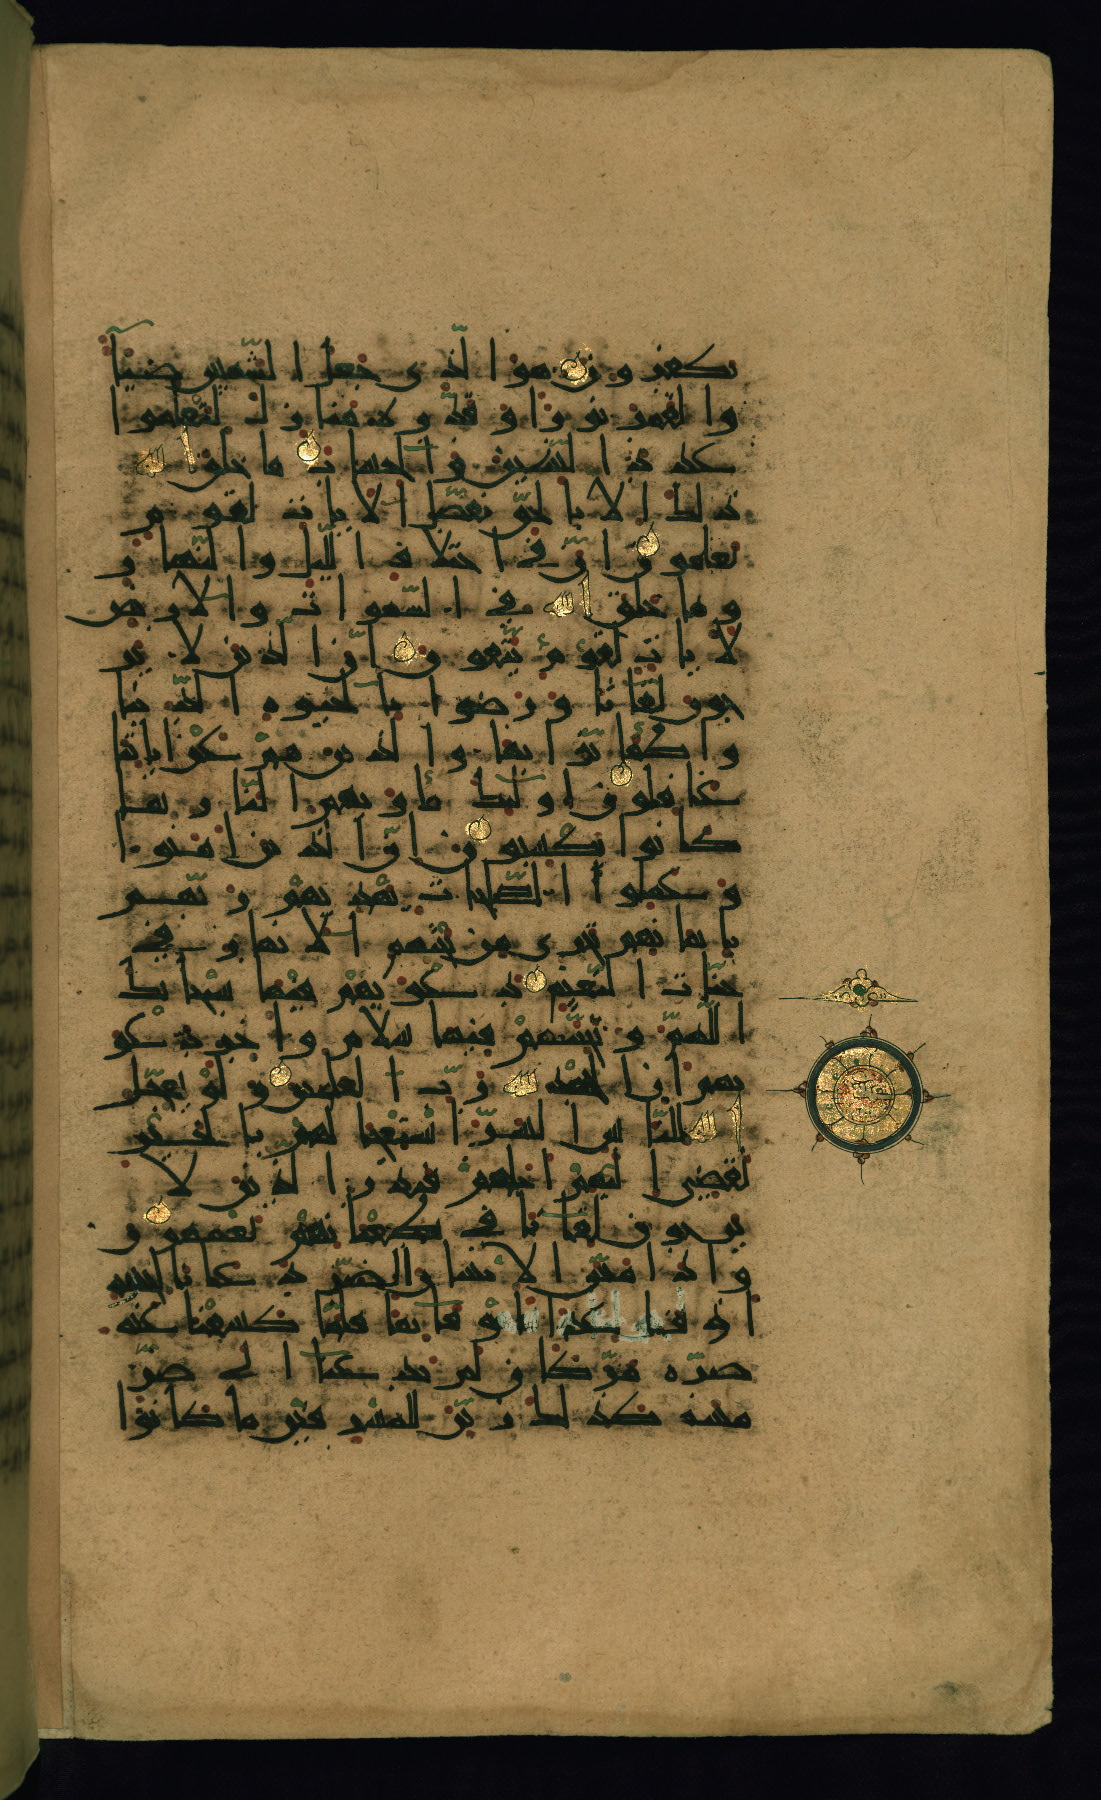 يكفرون هو الذى جعل الشمس ضيآ
والقمر نورا وقدّره منازل لتعلموا
عدد السّنين والحساب ما خلق الله
ذلك الا بالحقّ يفصّل الايات لقوم
يعلمون انّ فى اختلاف اللّيل والنّهار
وما خلق الله فى السّموات والارض
لايات لقوم يتّقون انّ الذين لا ير
جون لقانا ورضوا بالحيوه الدّنيا
واطمانّوا بها والذين هم عن اياتنا
غافلون اوليك ماويهم النّار بما
كانوا يكسبون انّ الذين امنوا
وعملوا الصّلحات يهديهم ربّهم
بايمانهم تجرى من تحتهم الانهار فى
جنّات النّعيم دعويهم فيها سبحانك
اللّهمّ وتحيّتهم فيها سلام واخر دعو
يهم ان الحمد لله ربّ العلمين ولو يعجّل
الله للنّاس الشّرّ استعجالهم بالخير
لقضى اليهم اجلهم فنذر الذين لا
يرجون لقانا فى طغيانهم يعمهون
واذا مسّ الانسان الضّرّ دعانا لجنبه
او قاعدا او قايما فلمّا كشفنا عنه
ضرّه مرّ كان لم يدعنا الى ضرّ
مسه كذلك زيّن للمسرفين ما كانوا